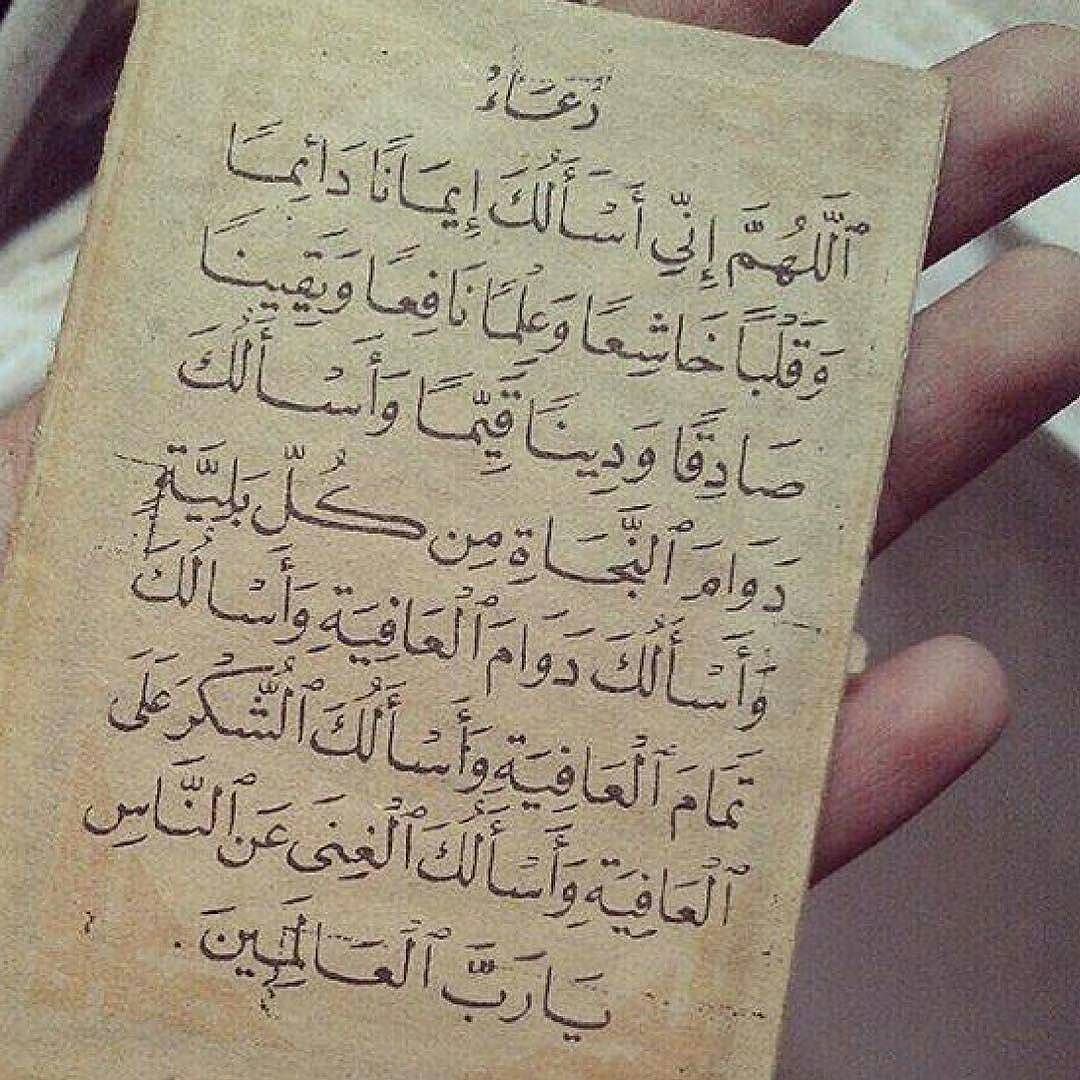 دُعَاءْ
ٱللَّهُمَّ إِنِّي أَسْأَلُكَ إِيمَانًا دَائِمًا
وَقَلْبًا خَاشِعًا وَعِلْمًا نَافِعًا وَيَقِينًا
صَادِقًا وَدِينًا قَيِّمًا وَأَسْأَلُكَ
دَوَامَ ٱلنَّجَاةِ مِن كُلِّ بَلِيَّةٍ
وَأَسْأَلُكَ دَوَامَ ٱلْعَافِيَةِ وَأَسْأَلُكَ
تَمَامَ ٱلْعَافِيَةِ وَأَسْأَلُكَ ٱلشُّكْرَ عَلَى
ٱلْعَافِيَةِ وَأَسْأَلُكَ ٱلْغِنَى عَنِ ٱلنَّاسِ
يَارَبَّ ٱلْعَالَمِينَ .